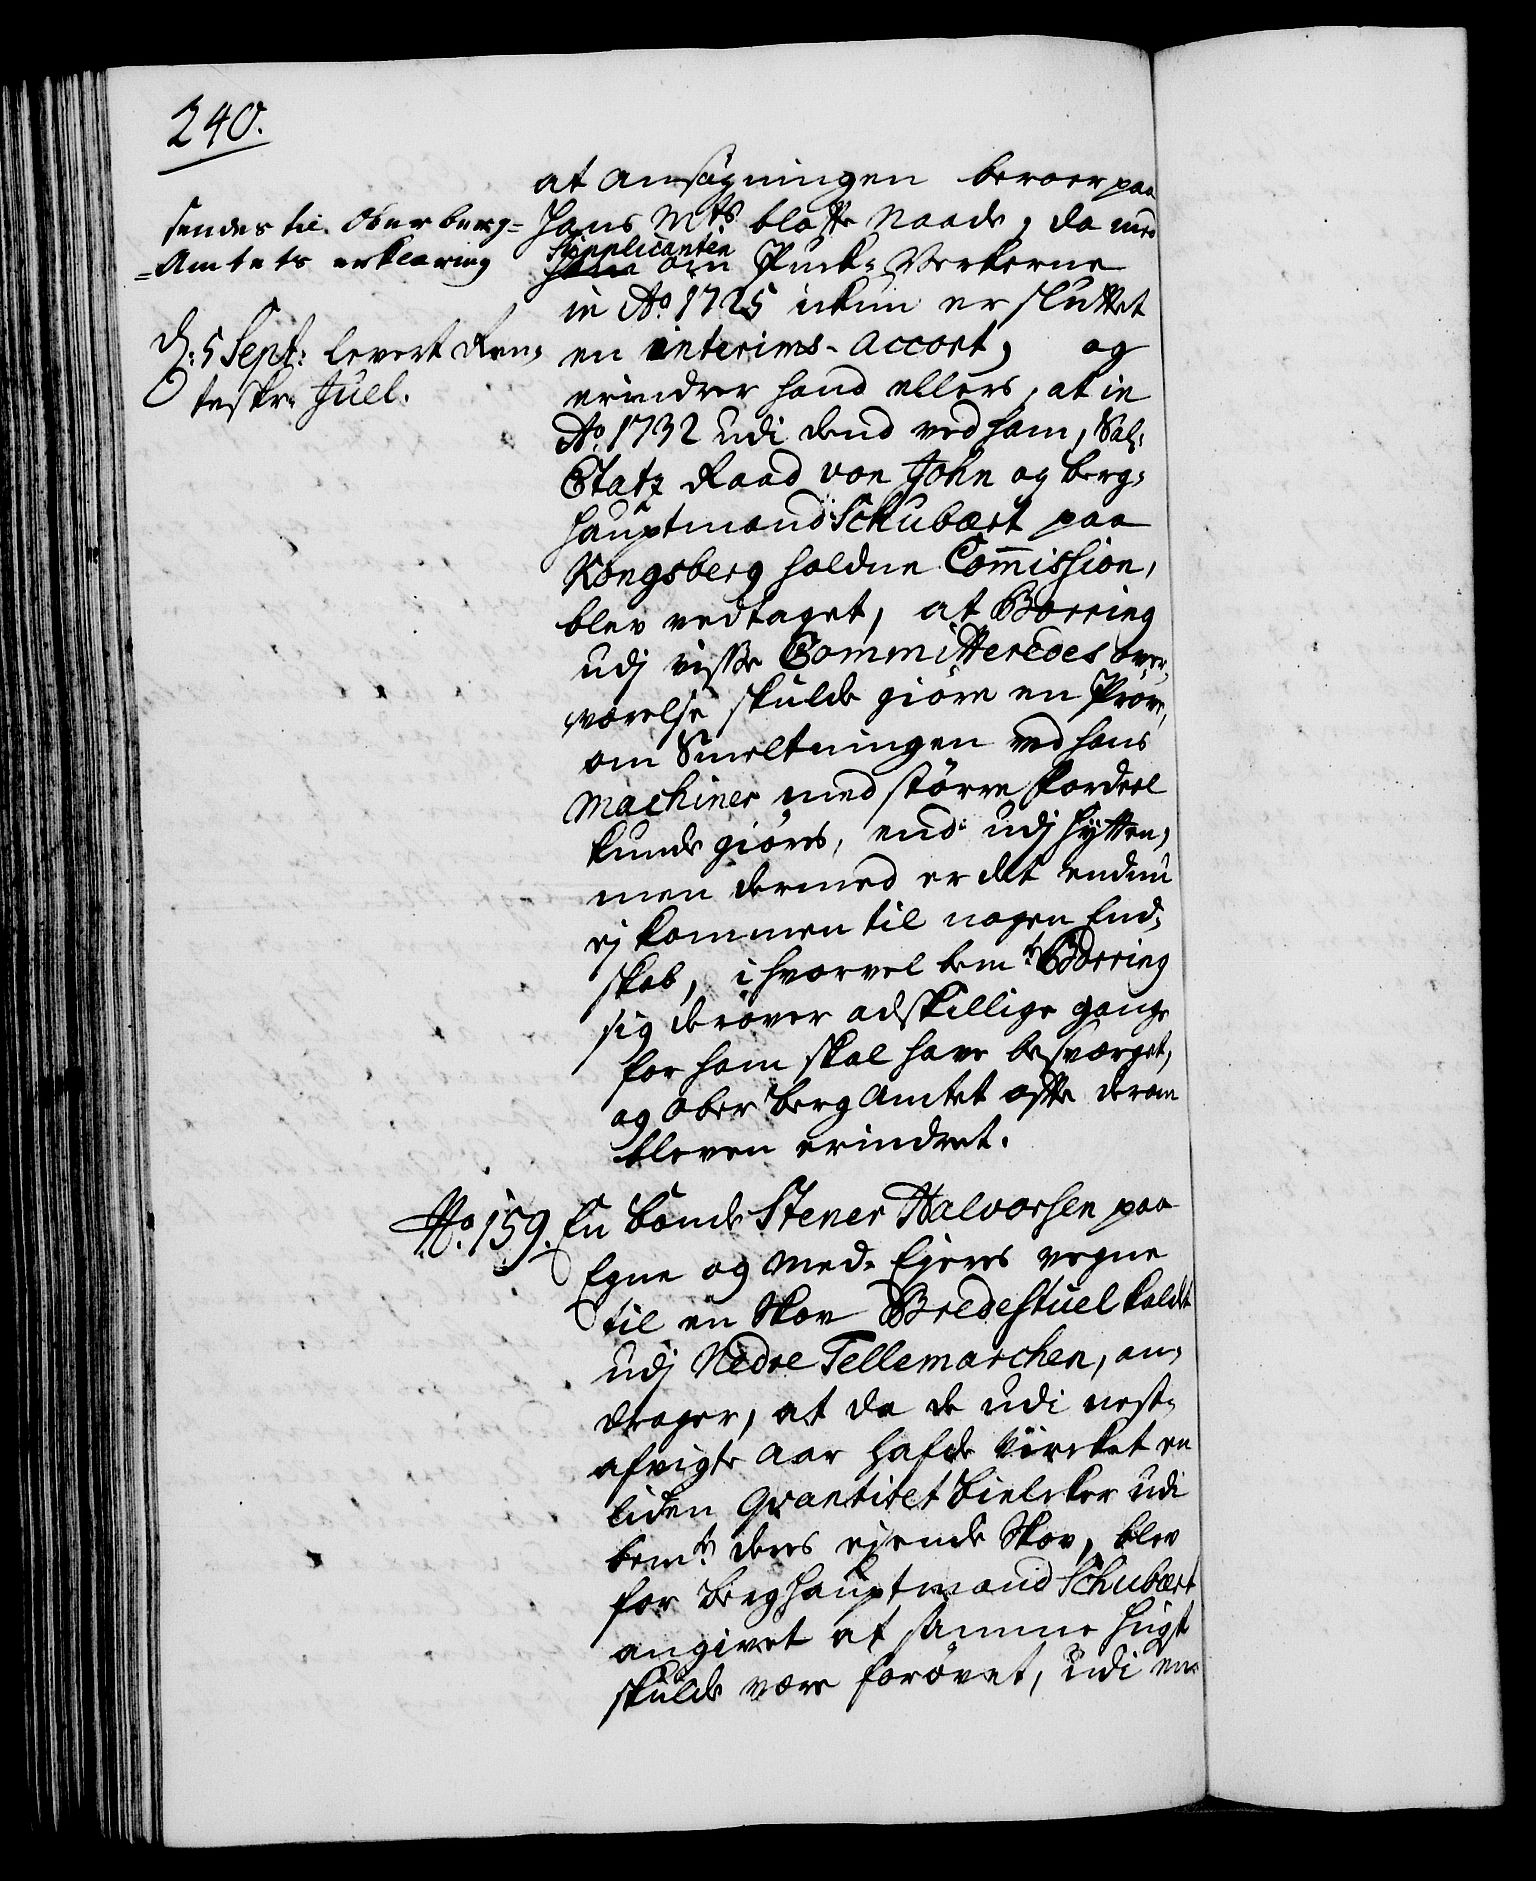 240.
sendes til Ober berg=
=Amtets erklæring
d: 5 Sept: levert Ren=
teskr: Juel.
at ansøgningen beroer paa
Hans Mts blotte Naade, da med
Supplicanten
om Puck-Verkerne
in Ao. 1725 ickun er sluttet
en interims-Accort, og
erindrer hand ellers, at in
Ao. 1732 udi dend ved ham, Sal:
Etatz Raad von John og berg=
hauptmand Schubært paa
Kongsberg holdne Commission,
blev vedtaget, at Borring
udj visse Committeredes over=
værelse skulde giöre en Pröve,
om Smeltningen ved hans
Machiner med större fordeel
kunde giöres, end udj Hytten,
men dermed er det endnu
ej kommen til nogen End=
skab, i hvorvel bemte Borring
sig deröver adskillige gange
for ham skal have besværget,
og Ober Berg Amtet ofte derom
bleven erindret.
No. 159. En bonde Stener Halvorsen paa
Egne og Med-Ejeres vegne
til en Skov Bredestuel kaldet
udj Nedre Tellemarchen, an=
drager, at da de udi nest=
afvigte Aar hafde virket en
liden Qvantitet bielcker udi
bemte deres ejende Skov, blev
for berghauptmand Schubært
angivet at samme Hugst
skulde være forövet, udi en